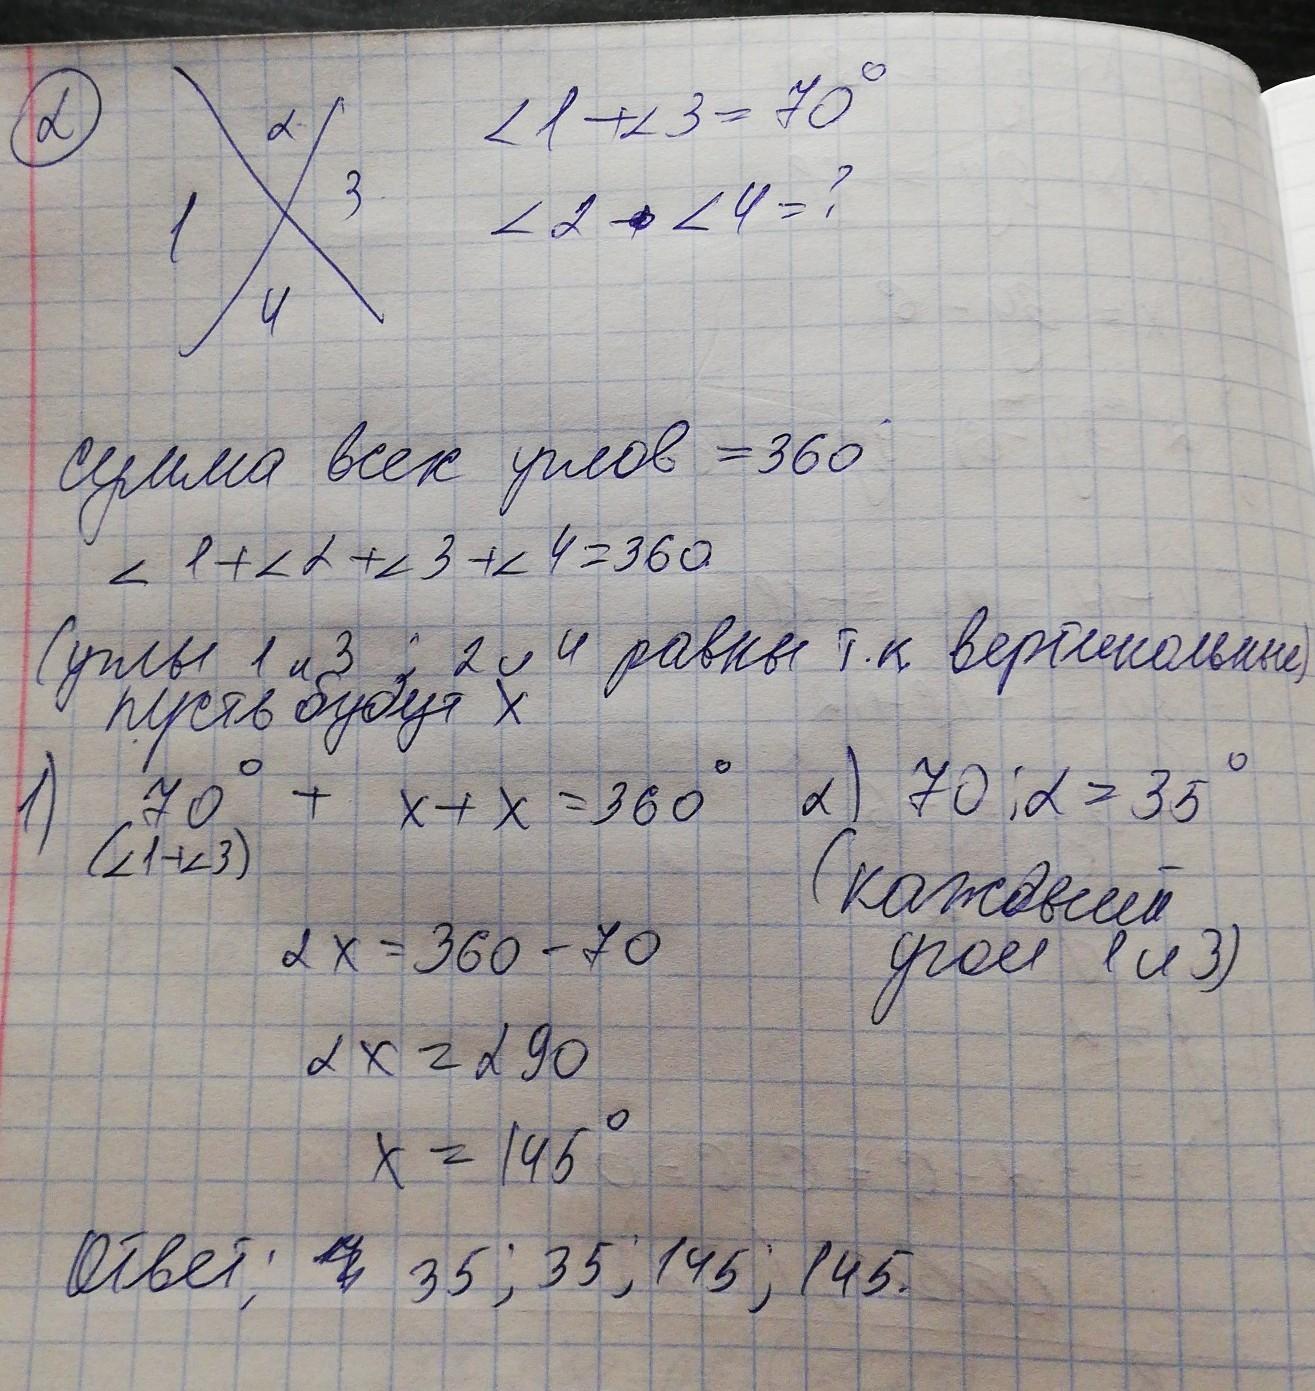 2
2
1
3
4
∠1+∠3=70°
∠2 ∠4=?
сумма всех углов =360
∠1+∠2+∠3+∠4=360
(углы 1 и 3 ; 2 и 4 равны т.к вертикольные)
пусть будут х
1) 70° + х+х=360°
(∠1+∠3)
2х=360-70
2х=290
х=145°
2) 70:2=35°
(каждый
угол 1 и 3)
Ответ: 35; 35; 145; 145.